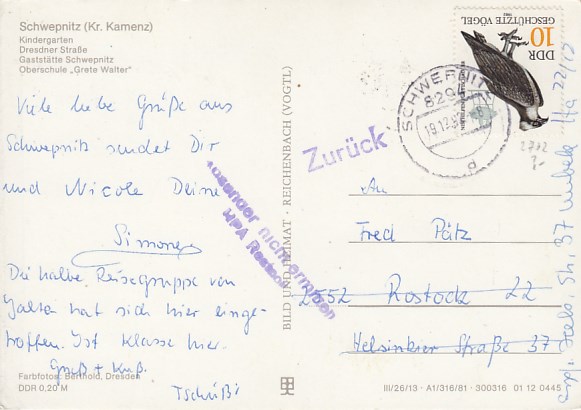 Schwepnitz (Kr. Kamenz)
Kindergarten
Dresdner Straße
Gaststätte Schwepnitz
Oberschule „Grete Walter"
Viele liebe Grüße aus
Schwepnitz sendet Dir
und Nicole Deine
Simone
Die halbe Reisegruppe von
Jalta hat sich hier einge-
troffen. Ist klasse hier.
Gruß + Kuß
Tschüß!
Farbfotos: Berthold, Dresden
DDR 0,20 M
BILD UND HEIMAT · REICHENBACH (VOGTL)
Zurück
Absender nicht ermitteln
HPA Rostock
SCHWEPNITZ
8295
d
DDR 10
GESCHÜTZTE VÖGEL
1982
An
Fred Pätz
2552 Rostock 22
Helsinkier Straße 37
37 unbek
22/12
III/26/13 · A1/316/81 · 300316 01 12 0445